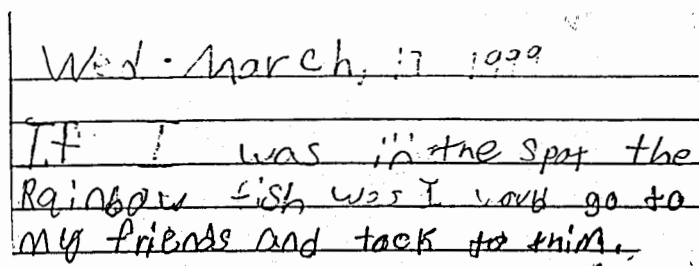 Wed. March, 17 1999
If I was in the spot the
Rainbow fish was I woud go to
my friends and tack to thim.